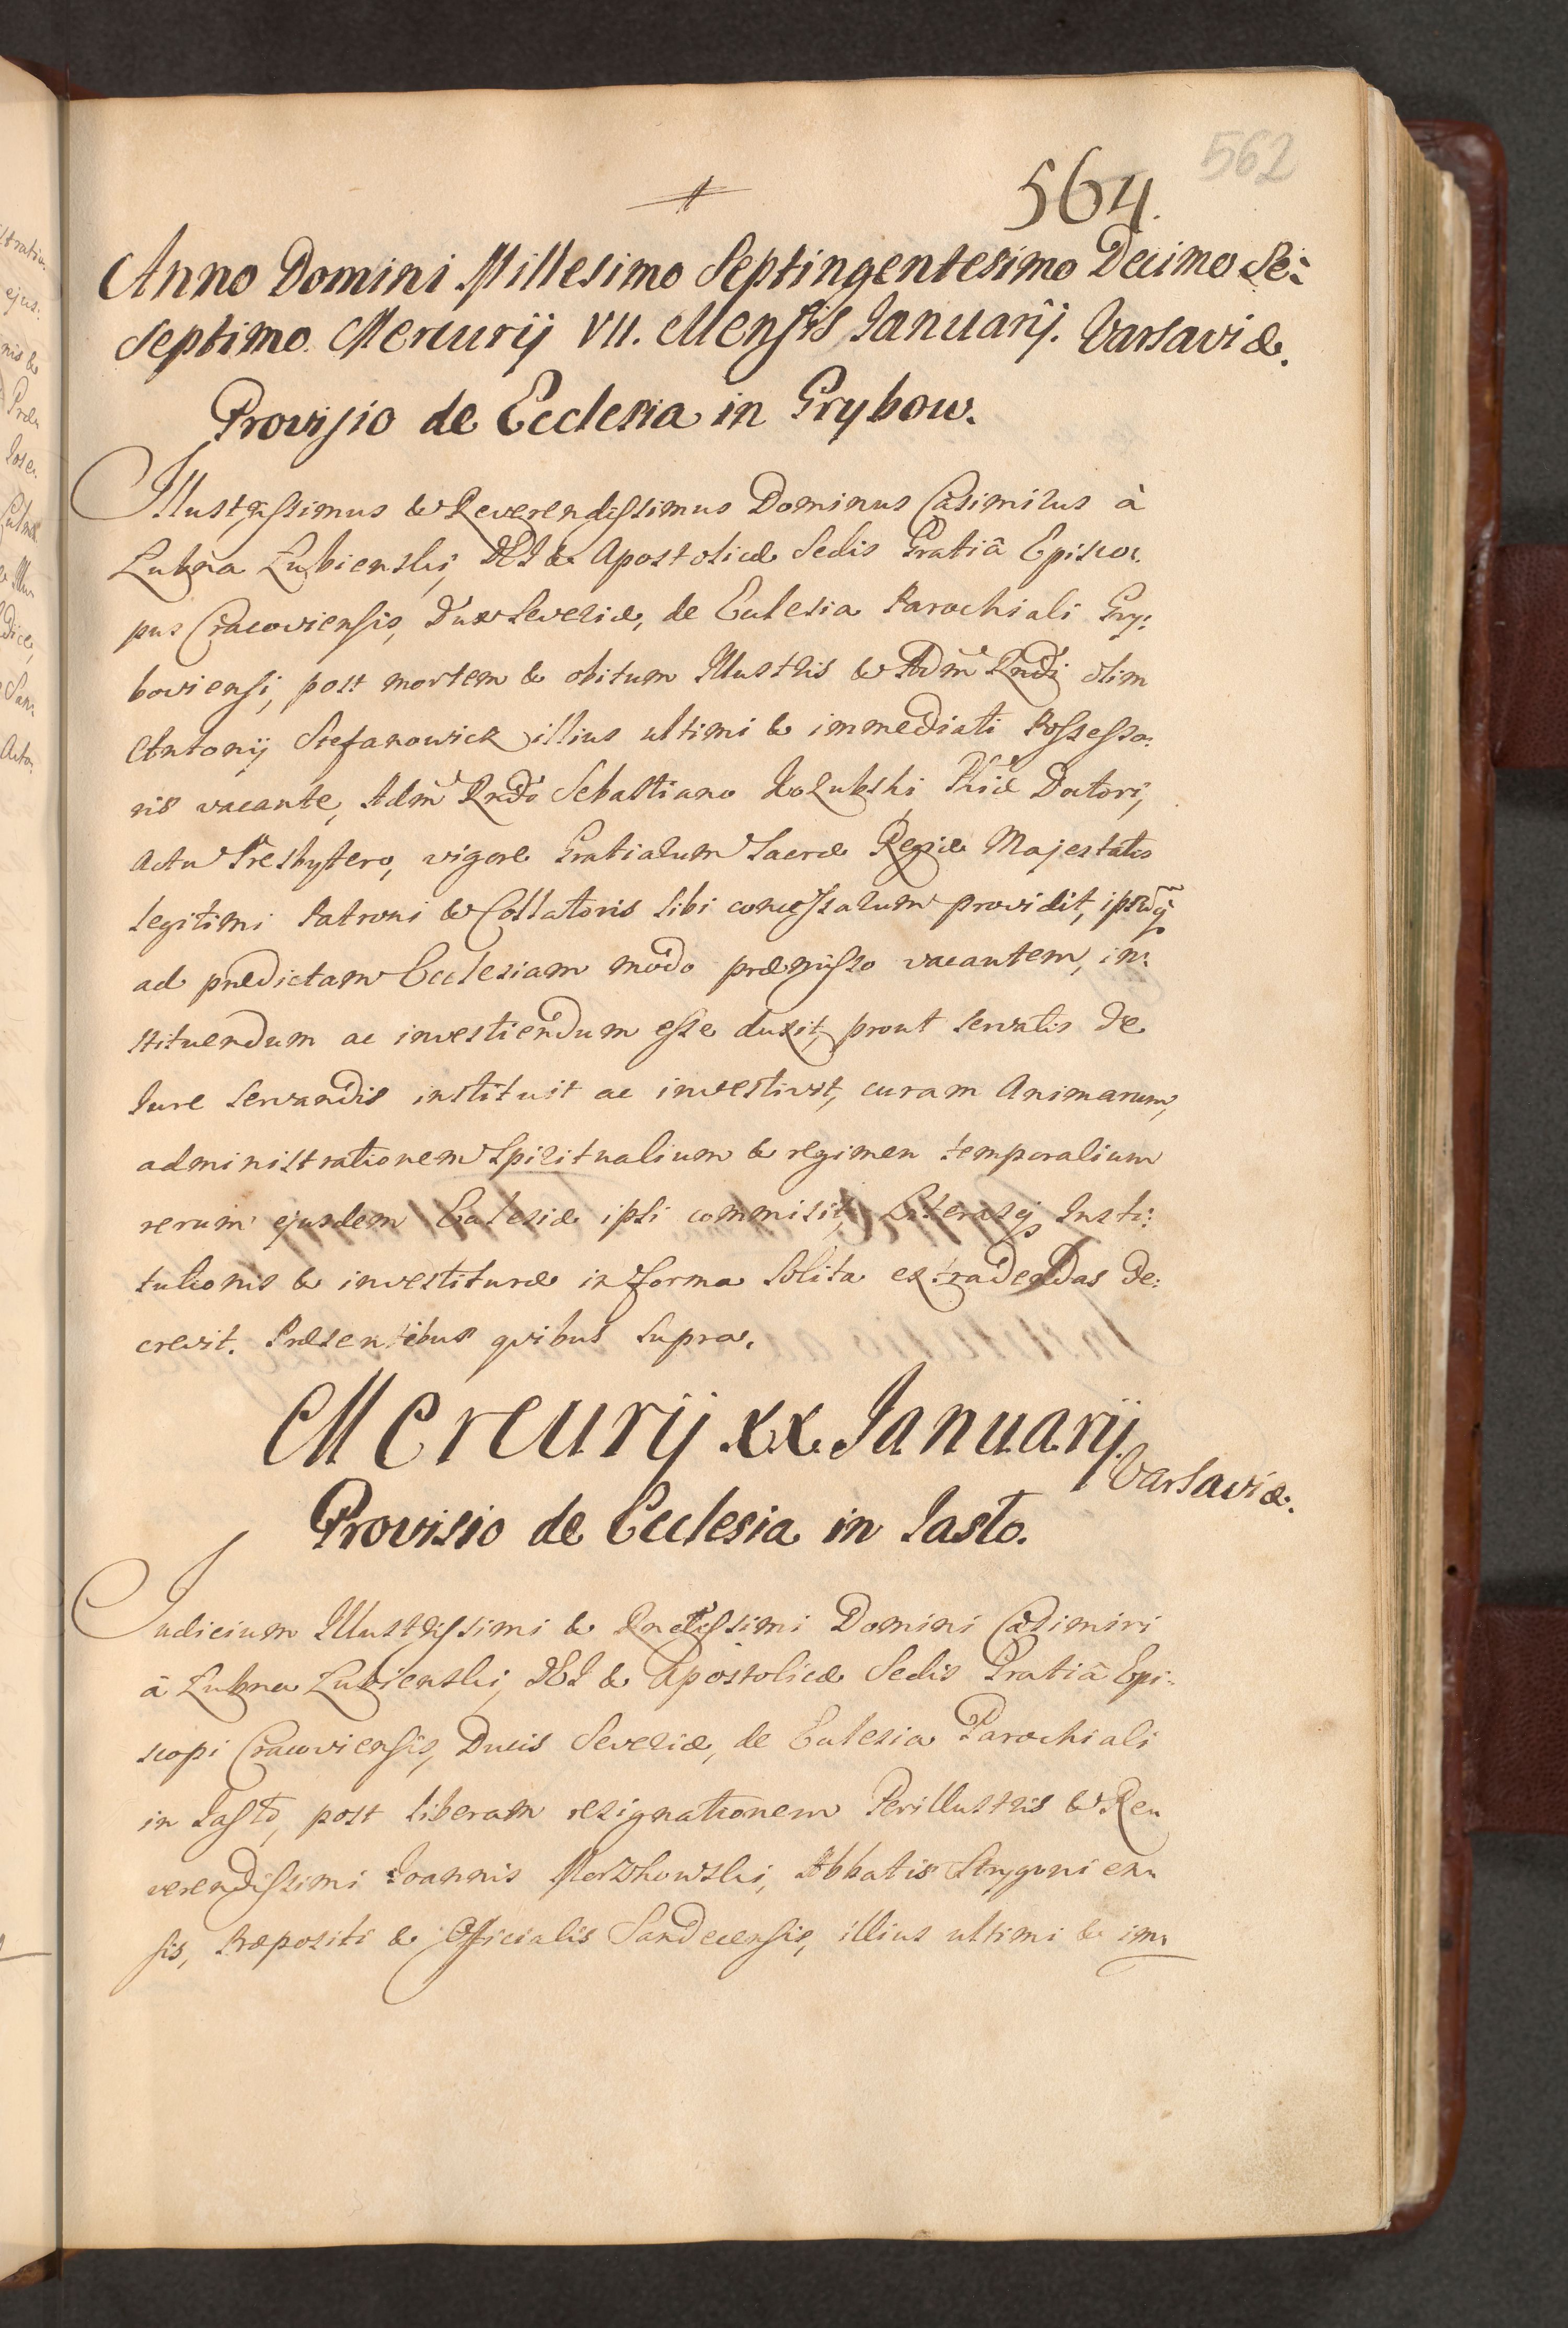 562
564.
Anno Domini Millesimo Septingentesimo Decimo Se:
Septimo. Mercurij VII. Mensis Januarij. Varsaviæ.
Provisio de Ecclesia in Grybow.
Illustrissimus & Reverendissimus Dominus Casimirus à
Lubna Lubienski, DEI & Apostolicæ Sedis Gratiâ Episco:
pus Cracoviensis, Dux Severiæ, de Ecclesia Parochiali Gry:
boviensi, post mortem & obitum Illustris & Adm Rndi olim
Antonij Stefanowicz illius ultimi & immediati Possesso:
ris vacante, Adm Rndo Sebastiano Phiæ Doctori,
actu Presbytero, vigore Gratiarum Sacræ Regiæ Majestatis
legitimi Patroni & Collatoris sibi concessarum providit, ipsumq
ad prædictam Ecclesiam modo præmisso vacantem, in:
stituendum ac investiendum esse duxit, prout servatis de
Jure servandis instituit ac investivit, curam Animarum,
administrationem Spiritualium & regimen temporalium
rerum ejusdem Ecclesiæ ipsi commisit, Literasq Insti:
tutionis & investituræ in forma solita extradendas de:
crevit. Præsentibus quibus supra.
Mercurij XX Januarij
Varsaviæ.
Provisio de Ecclesia in Jasło.
Judicium Illustrissimi & Rndissimi Domini Casimiri
à Lubna Lubienski, DEI & Apostolicæ Sedis Gratiâ Epi:
scopi Cracoviensis, Ducis Severiæ, de Ecclesia Parochiali
in Jasło, post liberam resignationem Perillustris & Re
verendissimi Joannis Morzkowski, Abbatis Strygonien
sis, Præpositi & Officialis Sandecensis, illius ultimi & im: